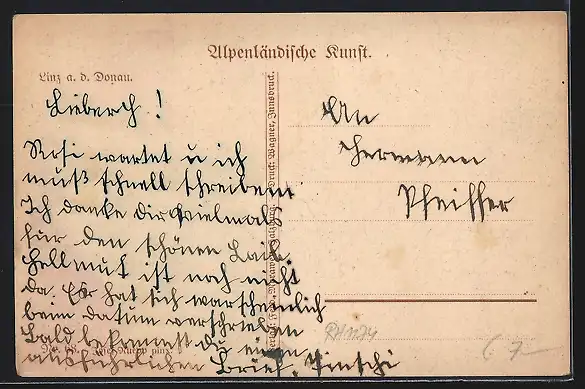 Alpenländische Kunst.
Linz a. d. Donau.
Lieberch!
Rosi wartet u ich
muß schnell schreiben
Ich danke Dir vielmals
für den schönen
Hellmut ist noch nicht
da. Er hat sich warscheinlich
beim datum verschrieben
Bald bekommst du einen
ausführlichen Brief.
Druck: Wagner, Innsbruck.
An
Hermann
Pfeiffer